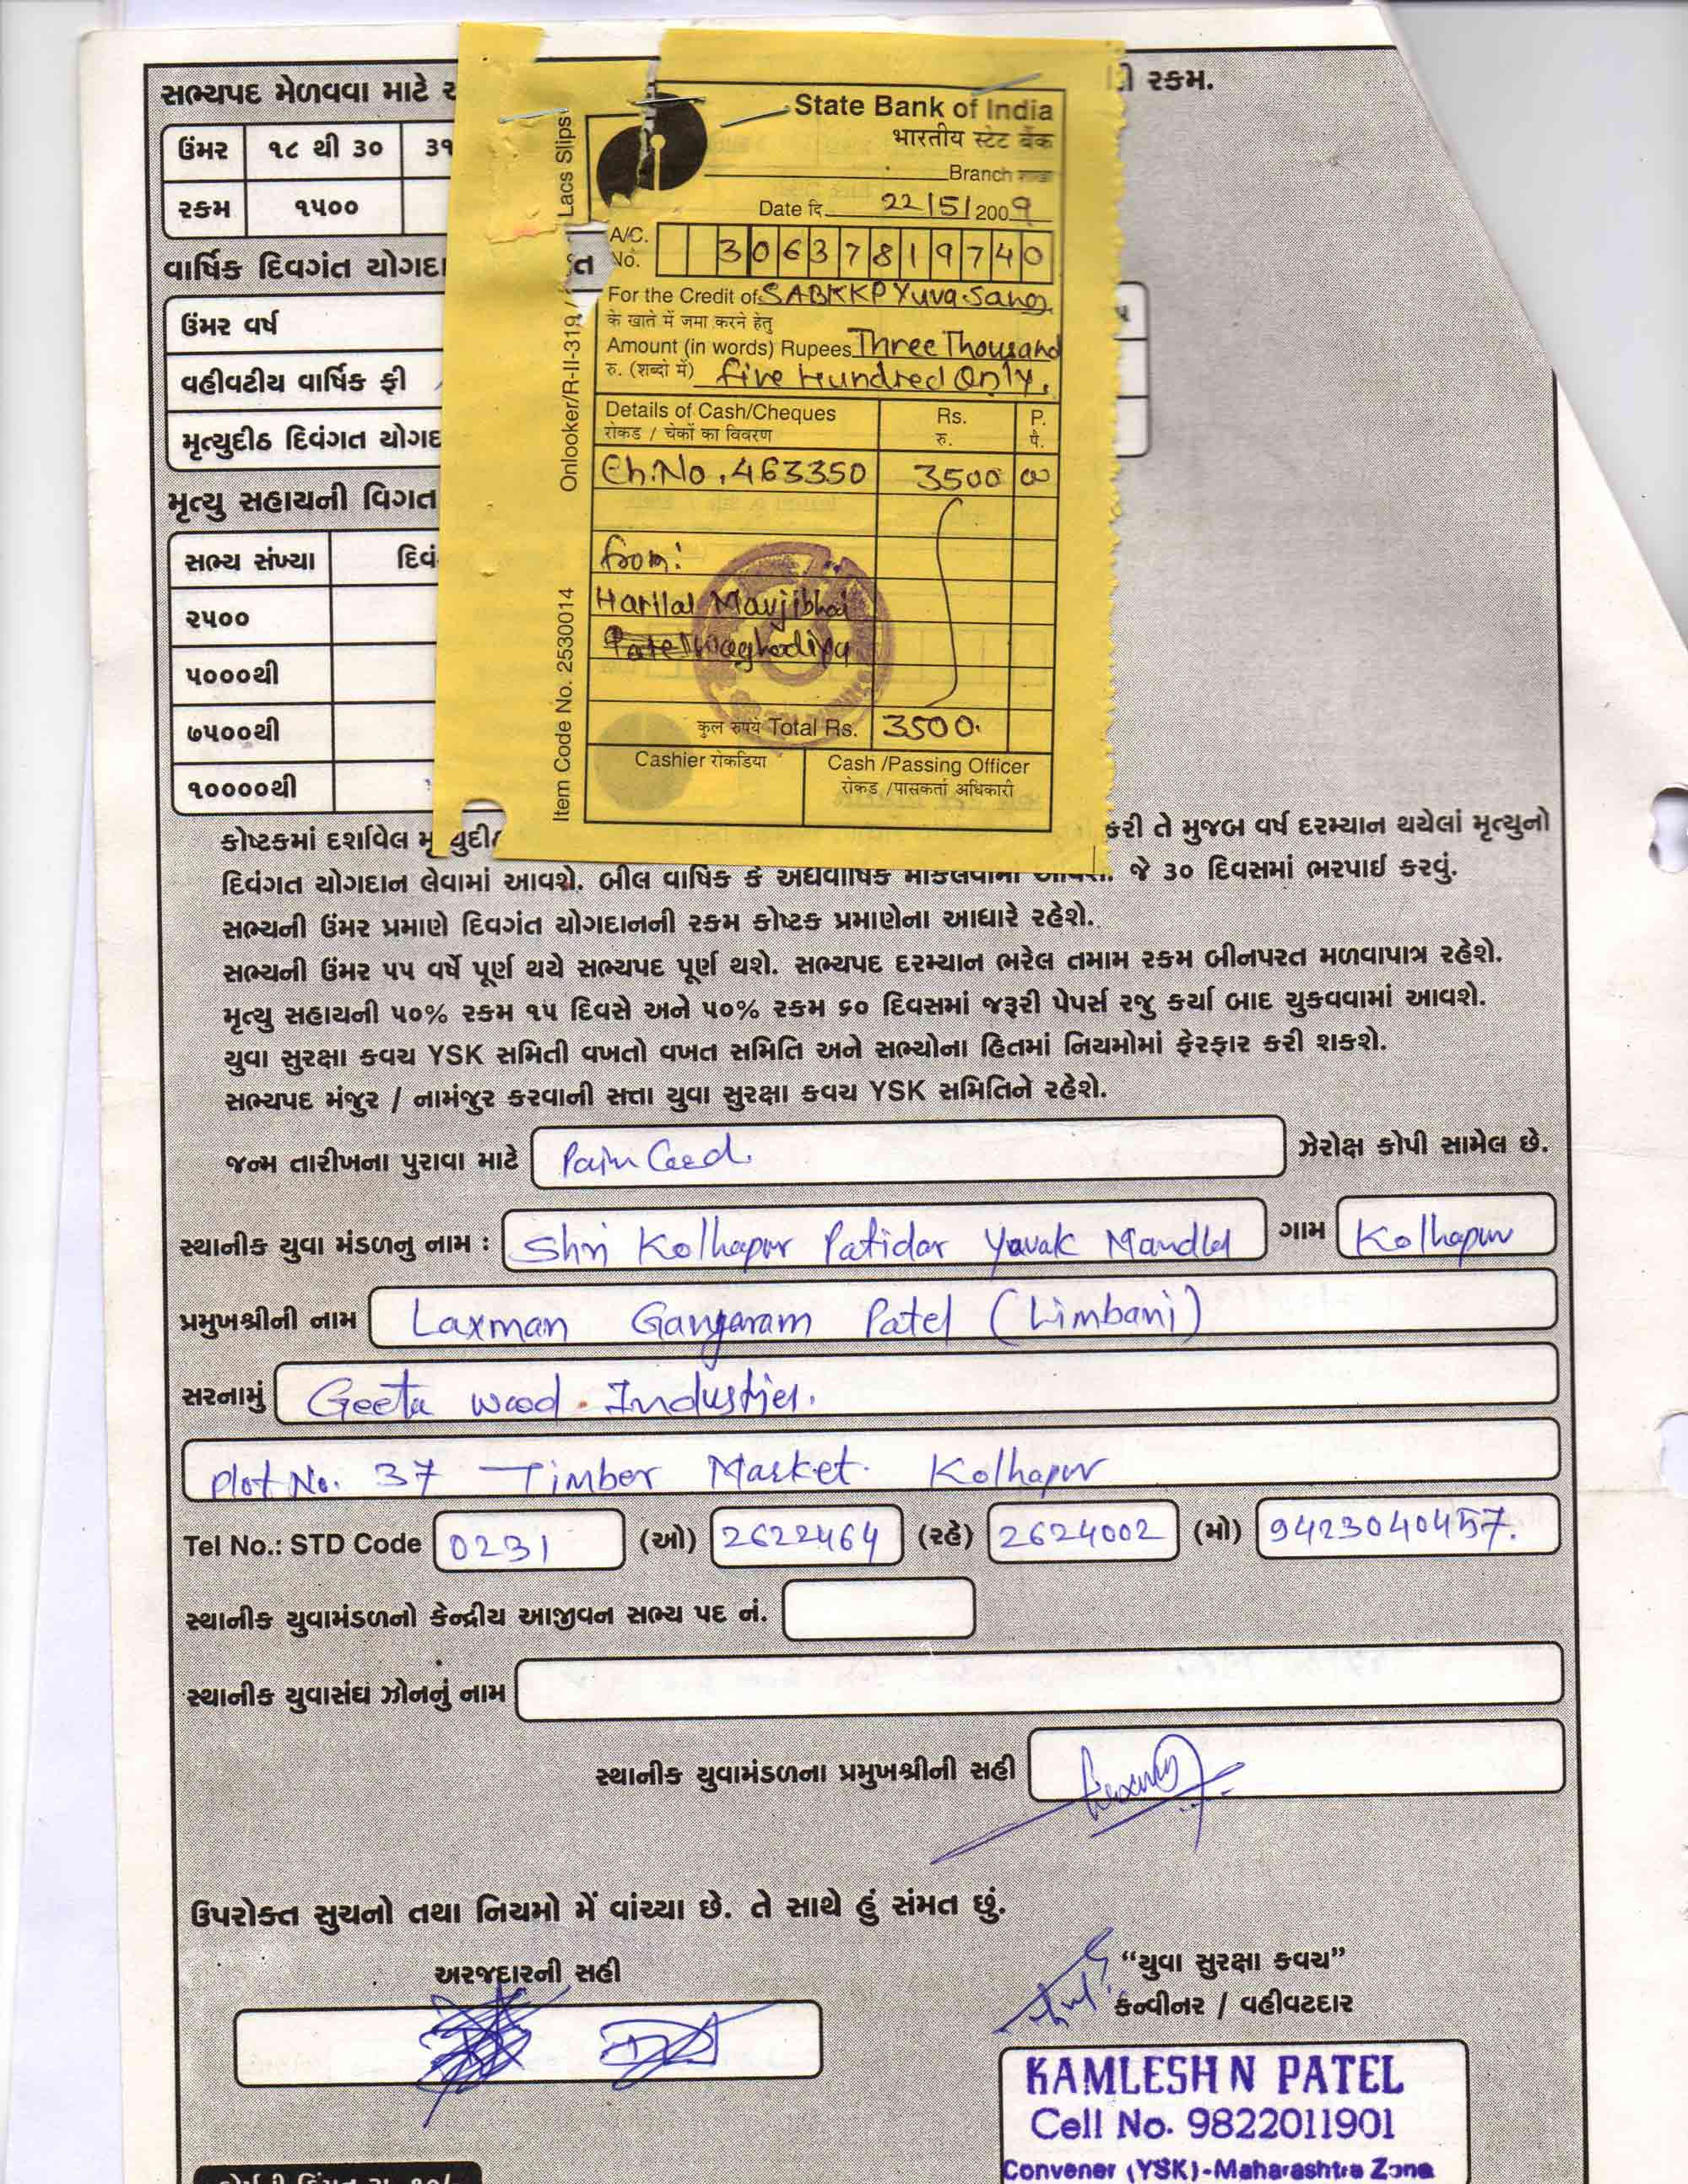 સભ્યપદ મેળવવા માટે
રકમ.
ઉંમર ૧૮ થી ૩૦ ૩૧
રકમ ૧૫૦૦
વાર્ષિક દિવગંત યોગદા
ત
ઉંમર વર્ષ
વહીવટીય વાર્ષિક ફી
મૃત્યુદીઠ દિવંગત યોગદ
મૃત્યુ સહાયની વિગત
સભ્ય સંખ્યા દિવં
૨૫૦૦
૫૦૦૦થી
૭૫૦૦થી
૧૦૦૦૦થી
State Bank of India
भारतीय स्टेट बैंक
Branch
Date दि. 22/5/2009
A/C. No. 30637819740
For the Credit of SABKKP Yuva Sang
के खाते में जमा करने हेतु
Amount (in words) Rupees Three Thousand
रु. (शब्दो में) five Hundred Only.
Details of Cash/Cheques Rs. P.
रोकड / चेकों का विवरण रु. पै.
Ch.No. 463350 3500 00
from:
Harilal Mavjibhai
Patel Waghadiya
कुल रुपये Total Rs. 3500.
Cashier रोकडिया Cash /Passing Officer
रोकड /पासकर्ता अधिकारी
Item Code No. 2530014 Onlooker/R-II-319 / Lacs Slips
કોષ્ટકમાં દર્શાવેલ કરી તે મુજબ વર્ષ દરમ્યાન થયેલાં મૃત્યુનો
દિવંગત યોગદાન લેવામાં આવશે. બીલ વાર્ષિક કે અર્ધવાર્ષિક મોકલવામાં આવશે. જે ૩૦ દિવસમાં ભરપાઈ કરવું.
સભ્યની ઉંમર પ્રમાણે દિવગંત યોગદાનની રકમ કોષ્ટક પ્રમાણેના આધારે રહેશે.
સભ્યની ઉંમર ૫૫ વર્ષે પૂર્ણ થયે સભ્યપદ પૂર્ણ થશે. સભ્યપદ દરમ્યાન ભરેલ તમામ રકમ બીનપરત મળવાપાત્ર રહેશે.
મૃત્યુ સહાયની ૫૦% રકમ ૧૫ દિવસે અને ૫૦% રકમ ૬૦ દિવસમાં જરૂરી પેપર્સ રજુ કર્યા બાદ ચુકવવામાં આવશે.
યુવા સુરક્ષા કવચ YSK સમિતી વખતો વખત સમિતિ અને સભ્યોના હિતમાં નિયમોમાં ફેરફાર કરી શકશે.
સભ્યપદ મંજુર / નામંજુર કરવાની સત્તા યુવા સુરક્ષા કવચ YSK સમિતિને રહેશે.
જન્મ તારીખના પુરાવા માટે Pain Card. ઝેરોક્ષ કોપી સામેલ છે.
સ્થાનીક યુવા મંડળનુ નામ : Shri Kolhapur Patidar Yuvak Mandal ગામ Kolhapur
પ્રમુખશ્રીની નામ Laxman Gangaram Patel (Limbani)
સરનામું Geeta wood Industries.
Plot No. 37 Timber Market. Kolhapur
Tel No.: STD Code 0231 (ઓ) 2622464 (રહે) 2624002 (મો) 9423040457.
સ્થાનીક યુવામંડળનો કેન્દ્રીય આજીવન સભ્ય પદ નં.
સ્થાનીક યુવાસંઘ ઝોનનું નામ
સ્થાનીક યુવામંડળના પ્રમુખશ્રીની સહી
ઉપરોક્ત સુચનો તથા નિયમો મેં વાંચ્યા છે. તે સાથે હું સંમત છું.
અરજદારની સહી
“યુવા સુરક્ષા કવચ”
કન્વીનર / વહીવટદાર
KAMLESH N PATEL
Cell No. 9822011901
Convener (YSK)-Maharashtra Zone